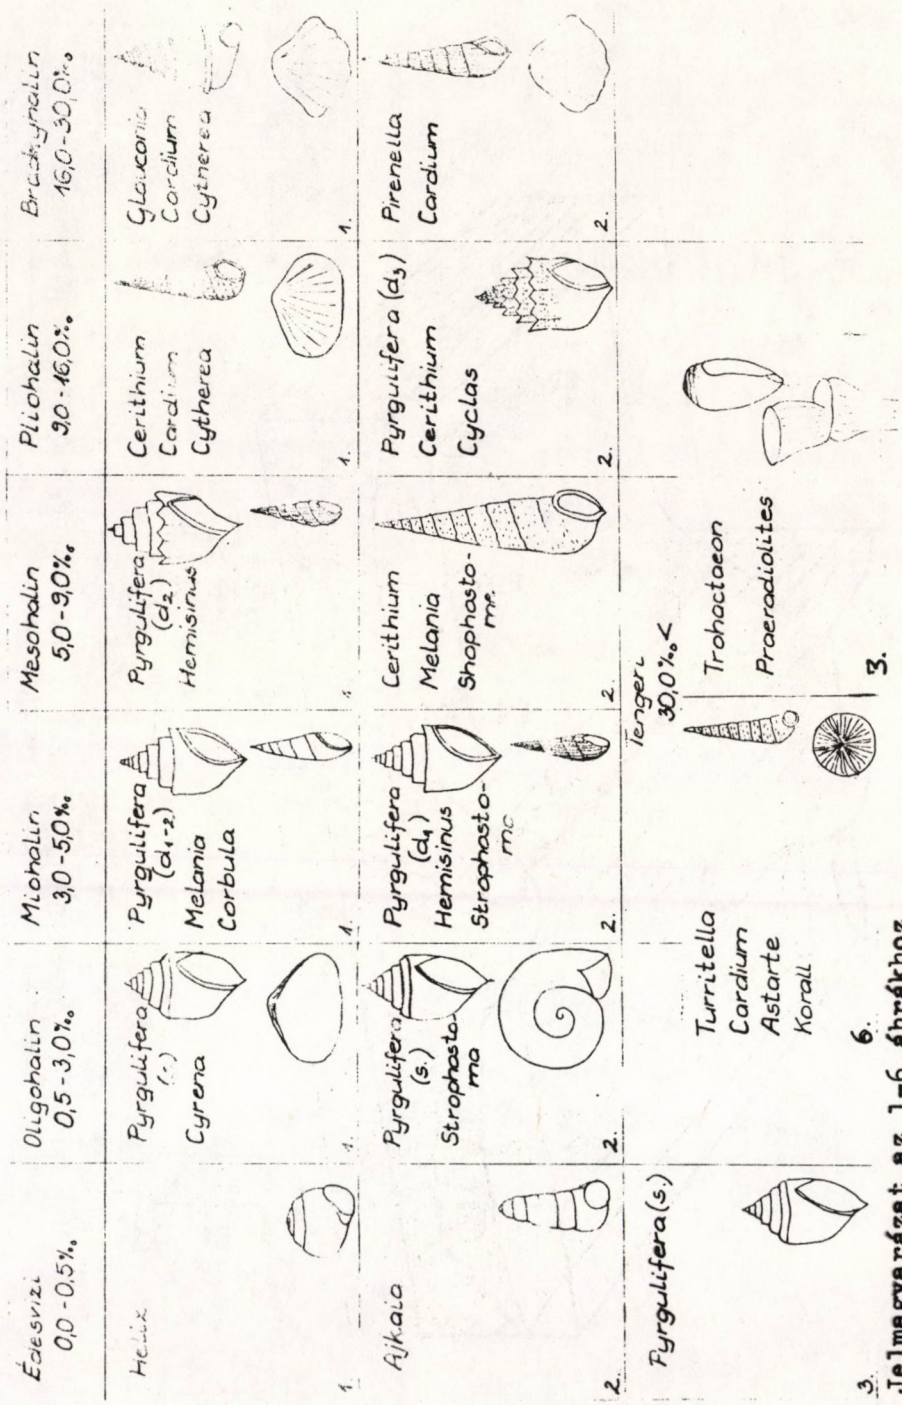 Édesvizi
0,0-0,5‰
Oligohalin
0,5-3,0‰
Miohalin
3,0-5,0‰
Mesohalin
5,0-9,0‰
Pliohalin
9,0-16,0‰
Brachyhalin
16,0-30,0‰
Helix
1.
Pyrgulifera
Cyrena
1.
Pyrgulifera
(d₁-₂)
Melania
Corbula
1.
Pyrgulifera
(d₂)
Hemisinus
1.
Cerithium
Cardium
Cytherea
1.
Glauconia
Cardium
Cytherea
1.
Ajkaia
2.
Pyrgulifera
(s.)
Strophosto-
ma
2.
Pyrgulifera
(d₁)
Hemisinus
Strophosto-
ma
2.
Cerithium
Melania
Shophosto-
ma
2.
Pyrgulifera (d₃)
Cerithium
Cyclas
2.
Pirenella
Cardium
2.
Tengeri
30,0‰<
Pyrgulifera(s.)
3.
Turritella
Cardium
Astarte
Korall
6.
Trohactaeon
Praeradiolites
3.
Jelmagyarázat az 1-6 ábrákhoz